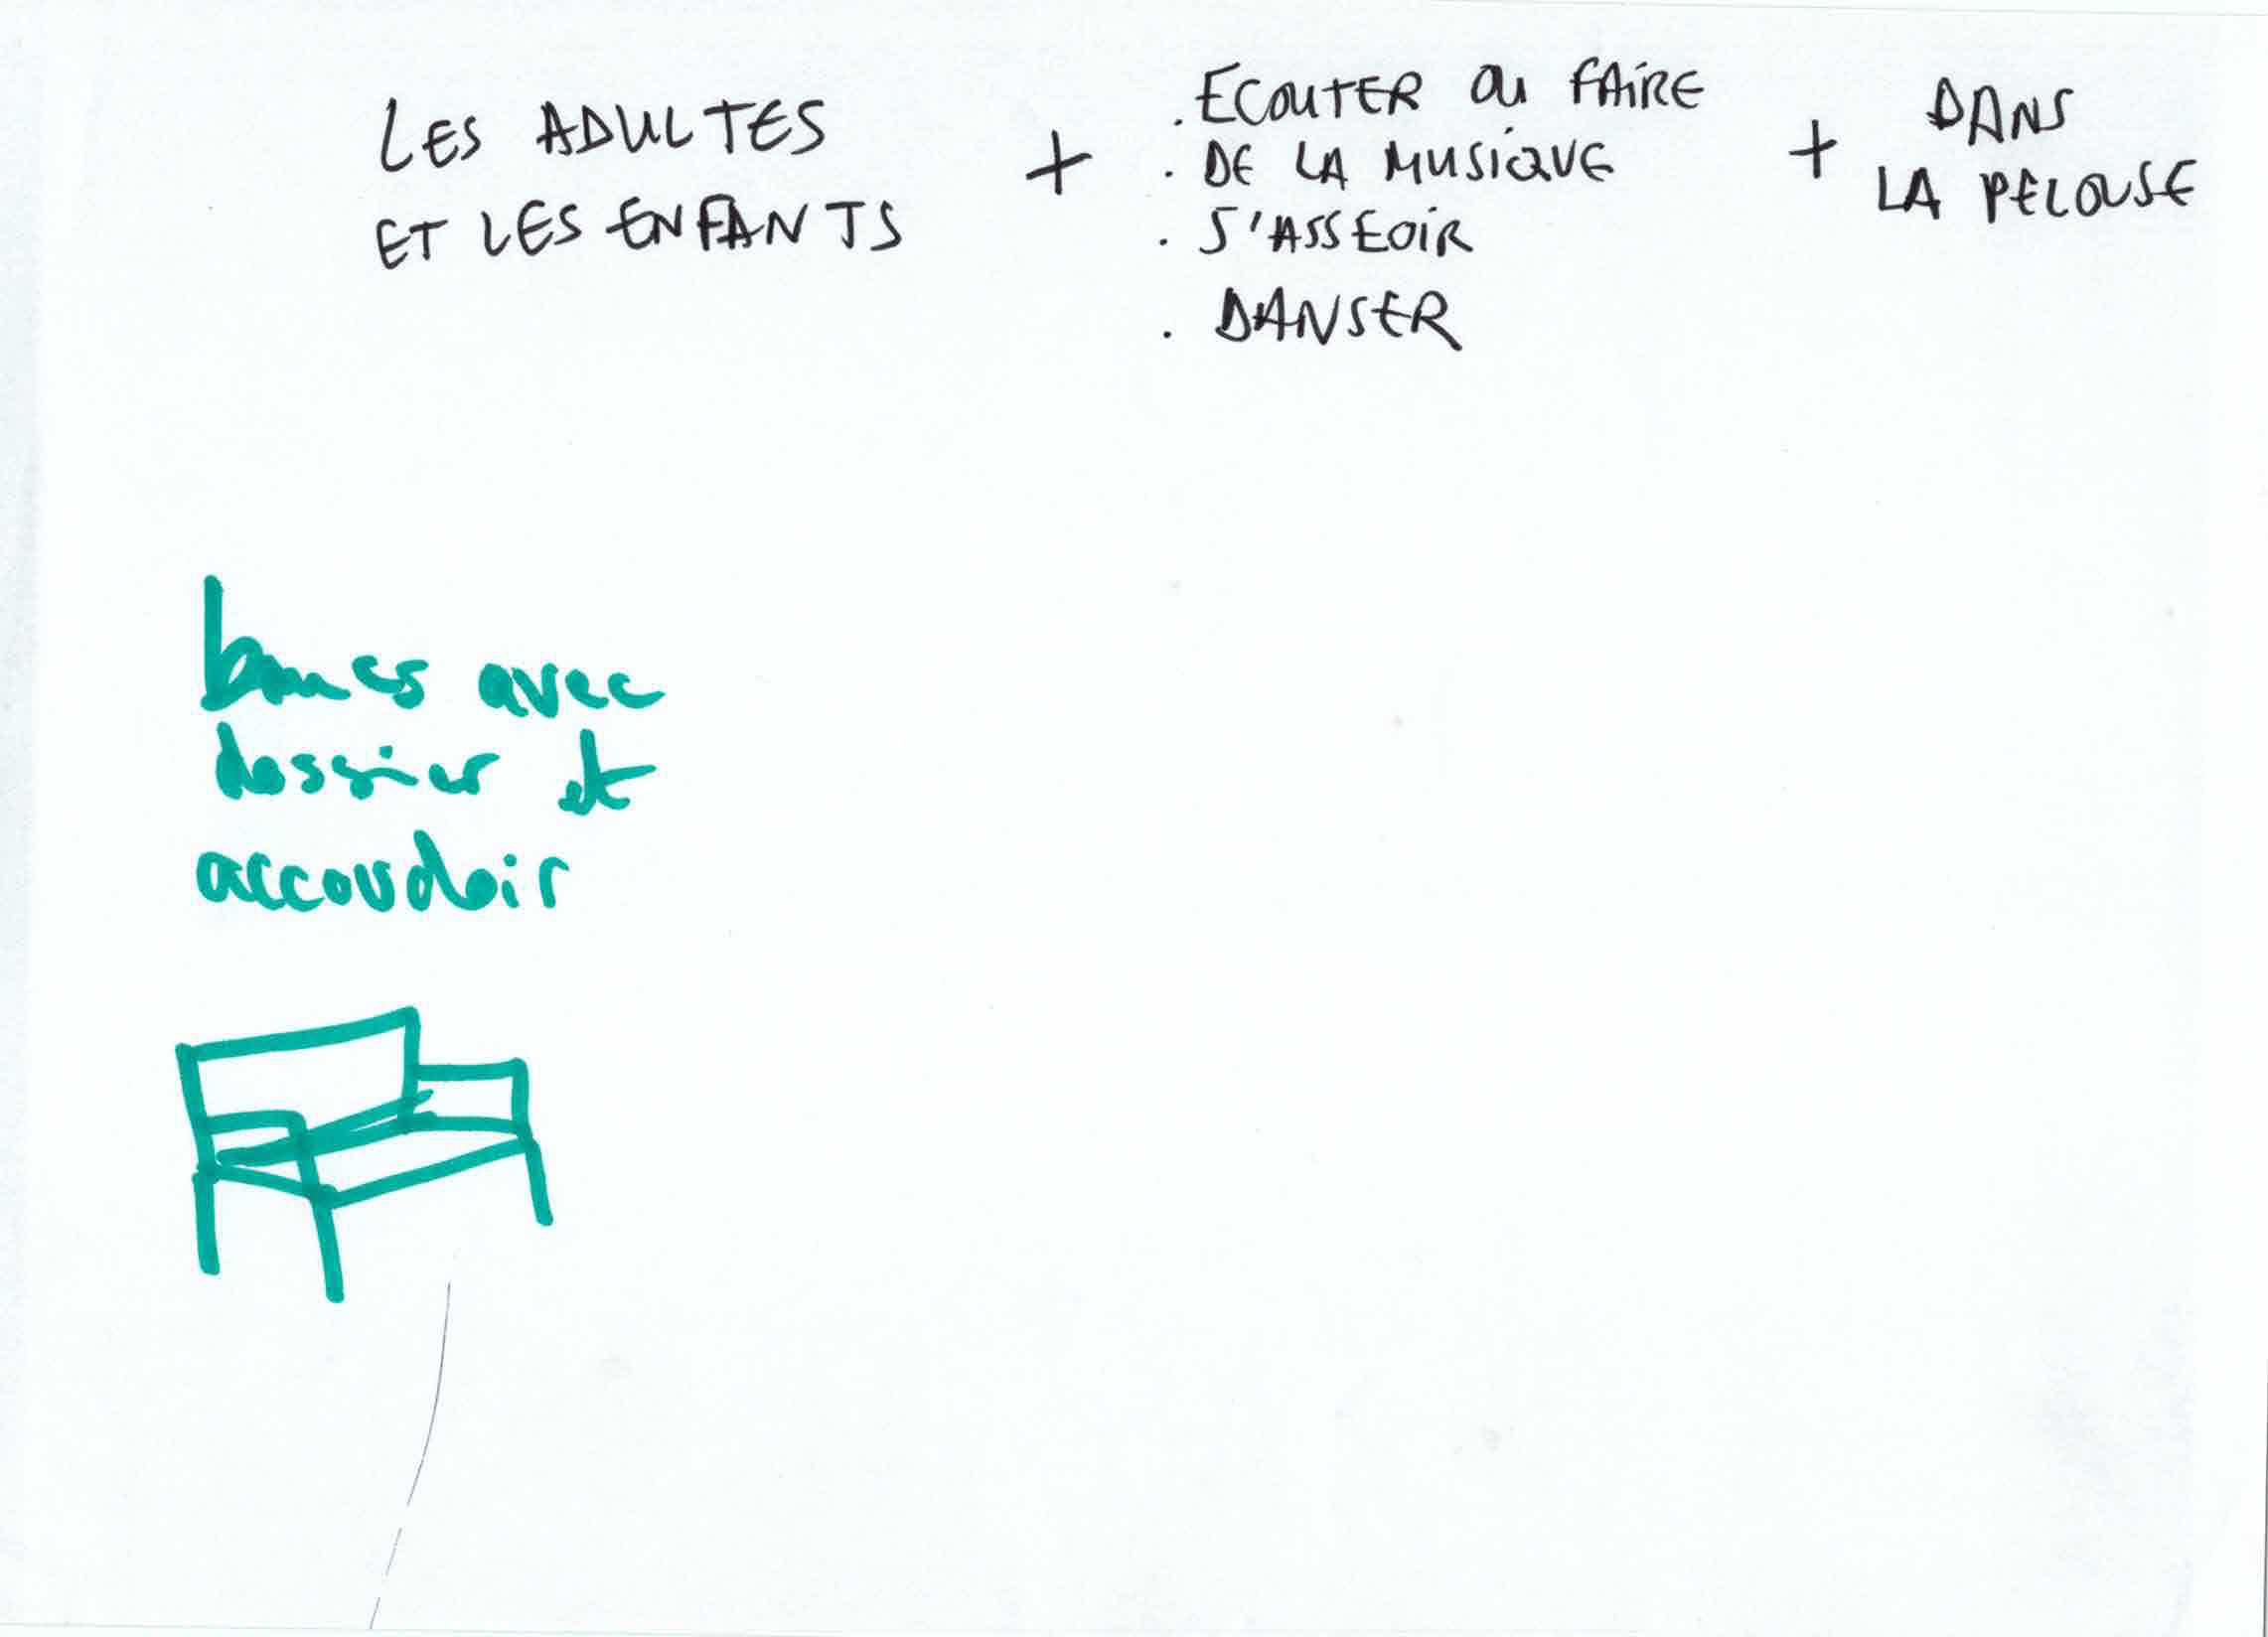 LES ADULTES
ET LES ENFANTS
+
. ECOUTER OU FAIRE
. DE LA MUSIQUE
. S'ASSEOIR
. DANSER
+
DANS
LA PELOUSE
bancs avec
dossier et
accoudoir